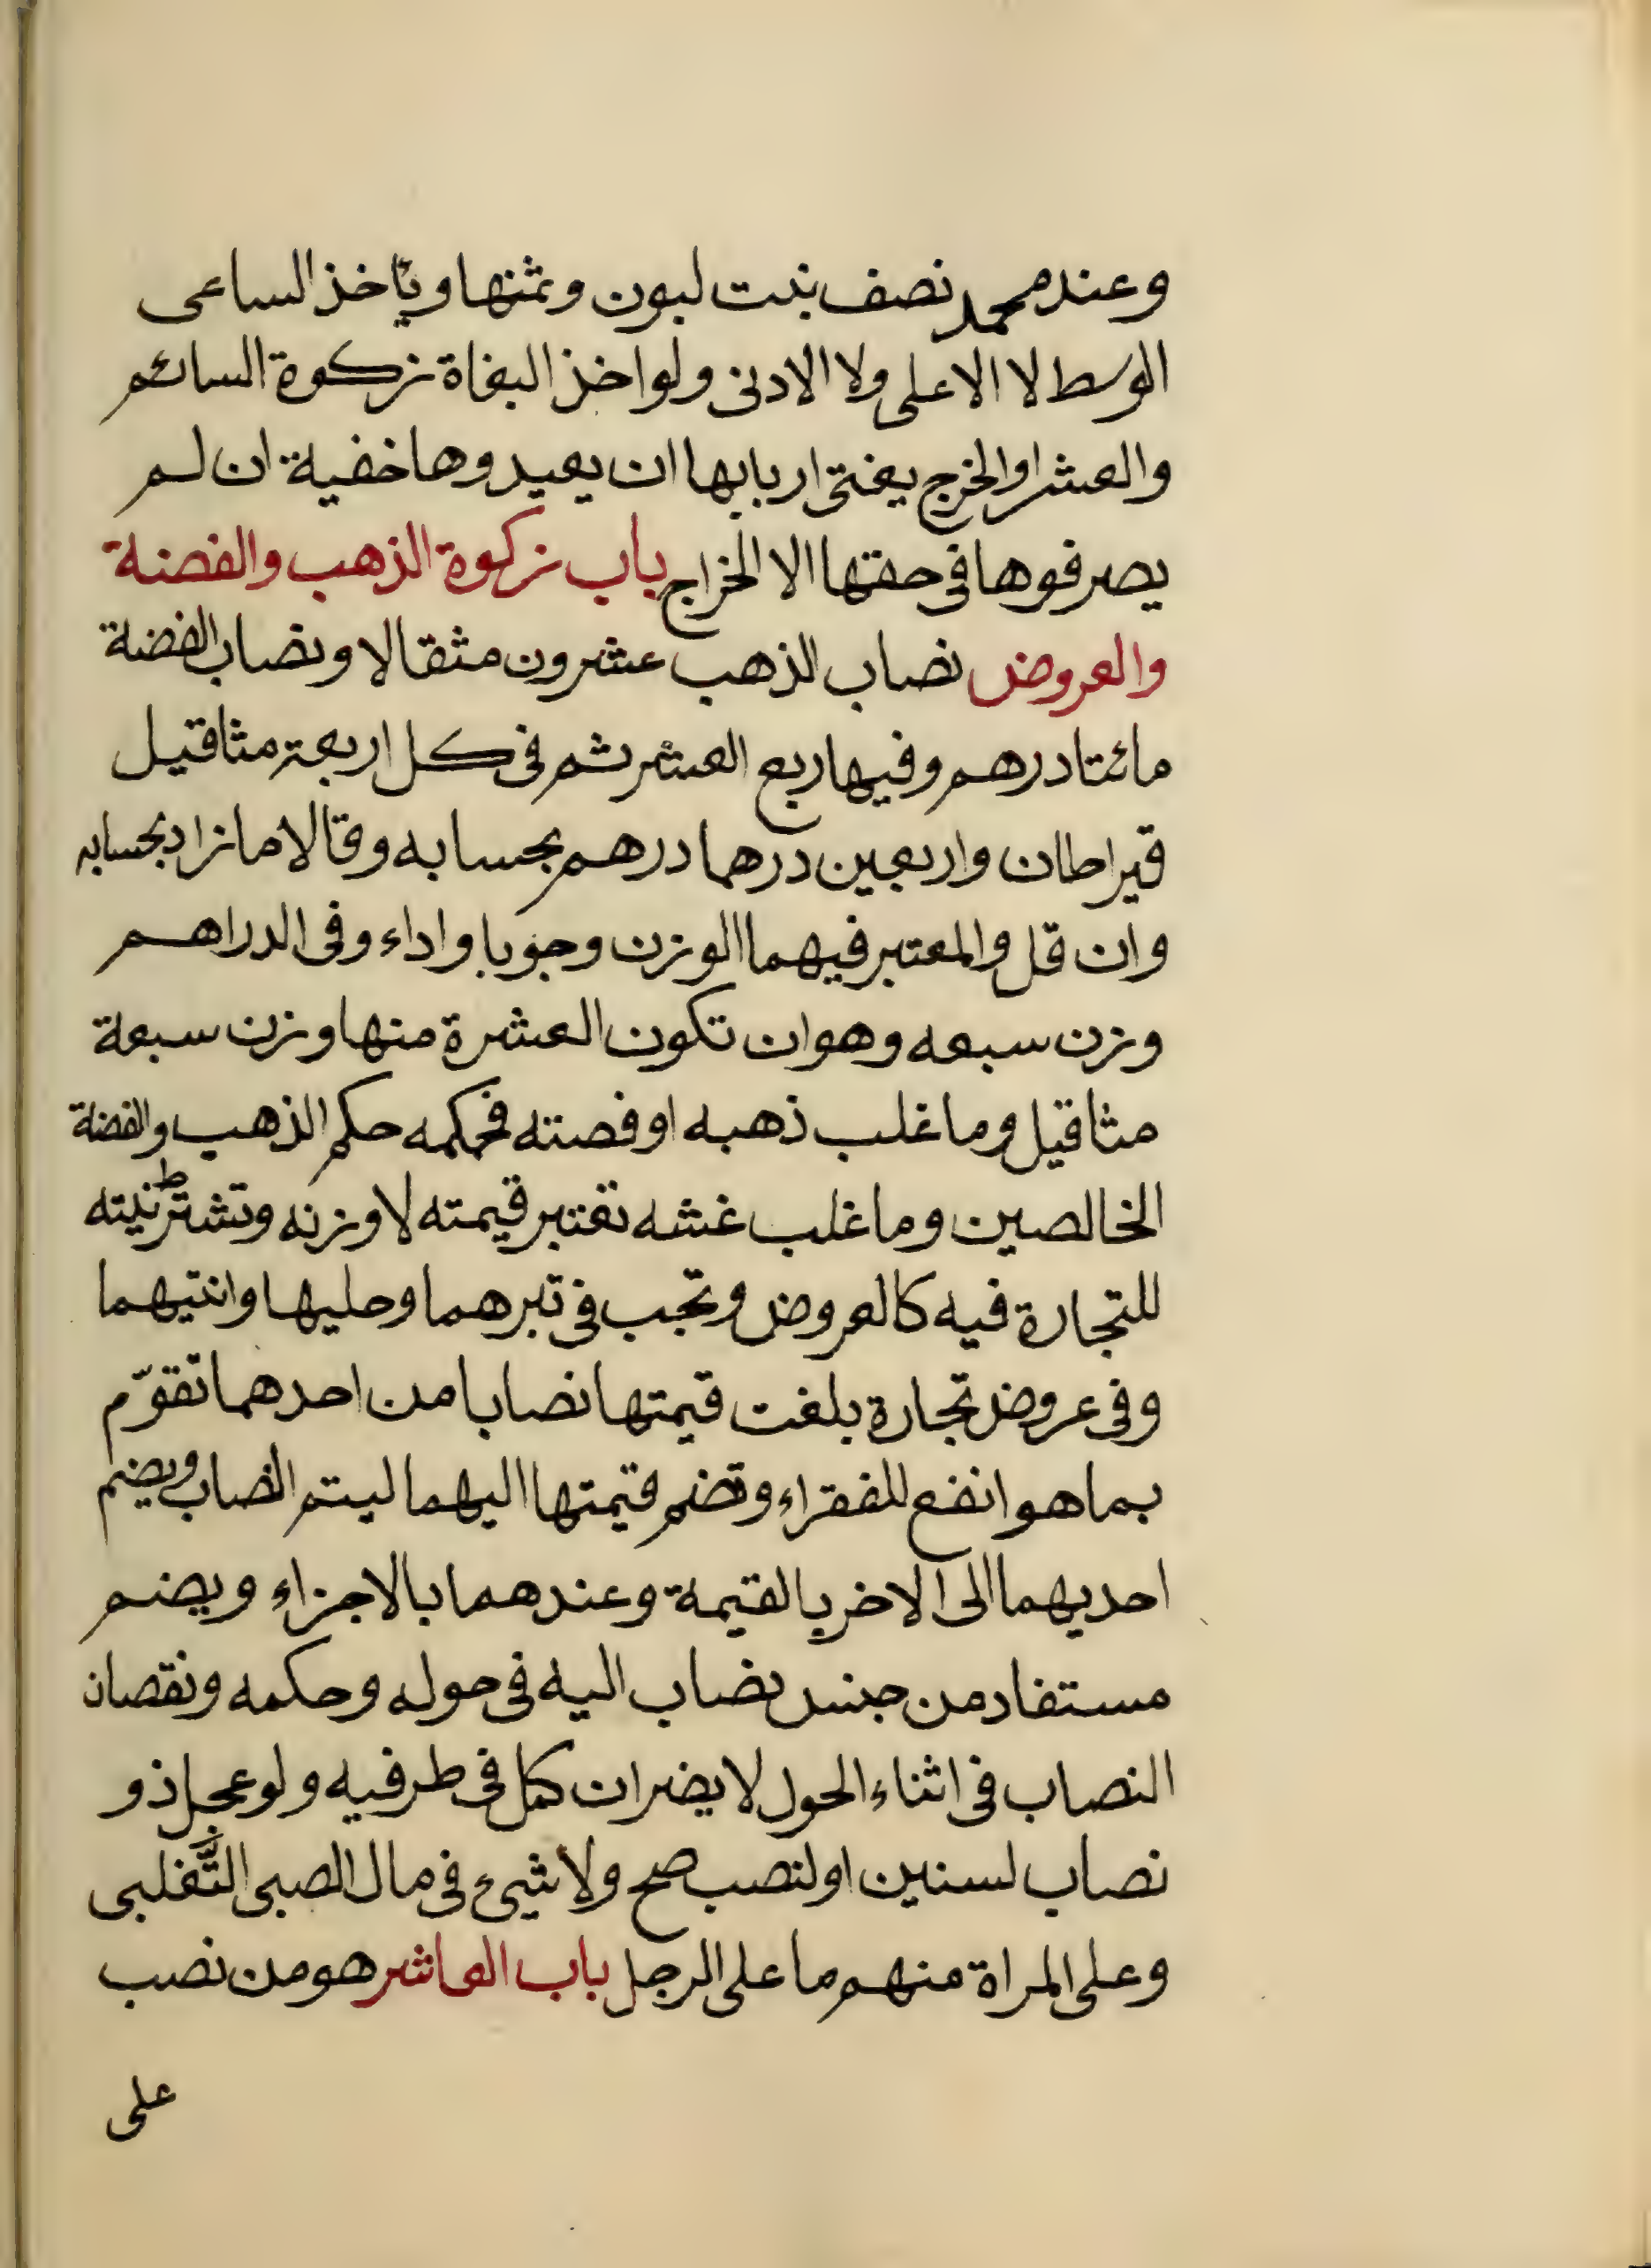 وعند محمد نصف بنت لبون وثمنها ويأخذ الساعى
الوسط لا الاعلى ولا الادنى ولو اخذ البغاة زكوة السائم
والعشر او الخرج يفتى اربابها ان يعيدوها خفية ان لم
يصرفوها فى حقها الا الخراج باب زكوة الذهب والفضة
والعروض نصاب الذهب عشرون مثقالا ونصاب الفضة
مائتا درهم وفيها ربع العشر ثم فى كل اربعة مثاقيل
قيراطان واربعين درهما درهم بحسابه وقالا ما زاد بحسابه
وان قل والمعتبر فيهما الوزن وجوبا واداء وفى الدراهم
وزن سبعه وهو ان تكون العشرة منها وزن سبعة
مثاقيل وما غلب ذهبه او فضته فحكمه حكم الذهب والفضة
الخالصين وما غلب غشه تعتبر قيمته لا وزنه وتشترط نيته
للتجارة فيه كالعروض وتجب فى تبرهما وحليها وانتيهما
وفى عروض تجارة بلغت قيمتها نصابا من احدهما تقوّم
بما هو انفع للفقراء وتضم قيمتها اليهما ليتم النصاب ويضم
احديهما الى الاخر بالقيمة وعندهما بالاجزاء ويضم
مستفاد من جنس نصاب اليه فى حوله وحكمه ونقصان
النصاب فى اثناء الحول لا يضر ان كمل فى طرفيه ولو عجل ذو
نصاب لسنين او لنصب صح ولا شىء فى مال الصبى التَّغلبى
وعلى المراة منهم ما على الرجل باب العاشر هو من نصب
على